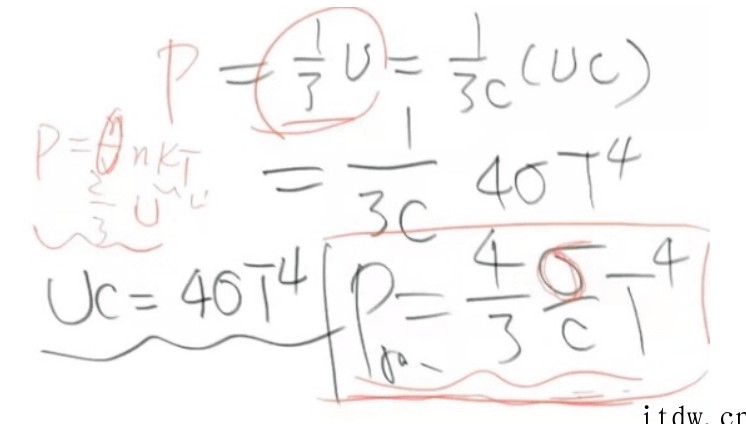 P = 1/3 U = 1/3c (UC)
P = nKT
2/3 U
= 1/3C 4σT⁴
UC = 4σT⁴
P = 4/3 σ/C T⁴
itdw.cn